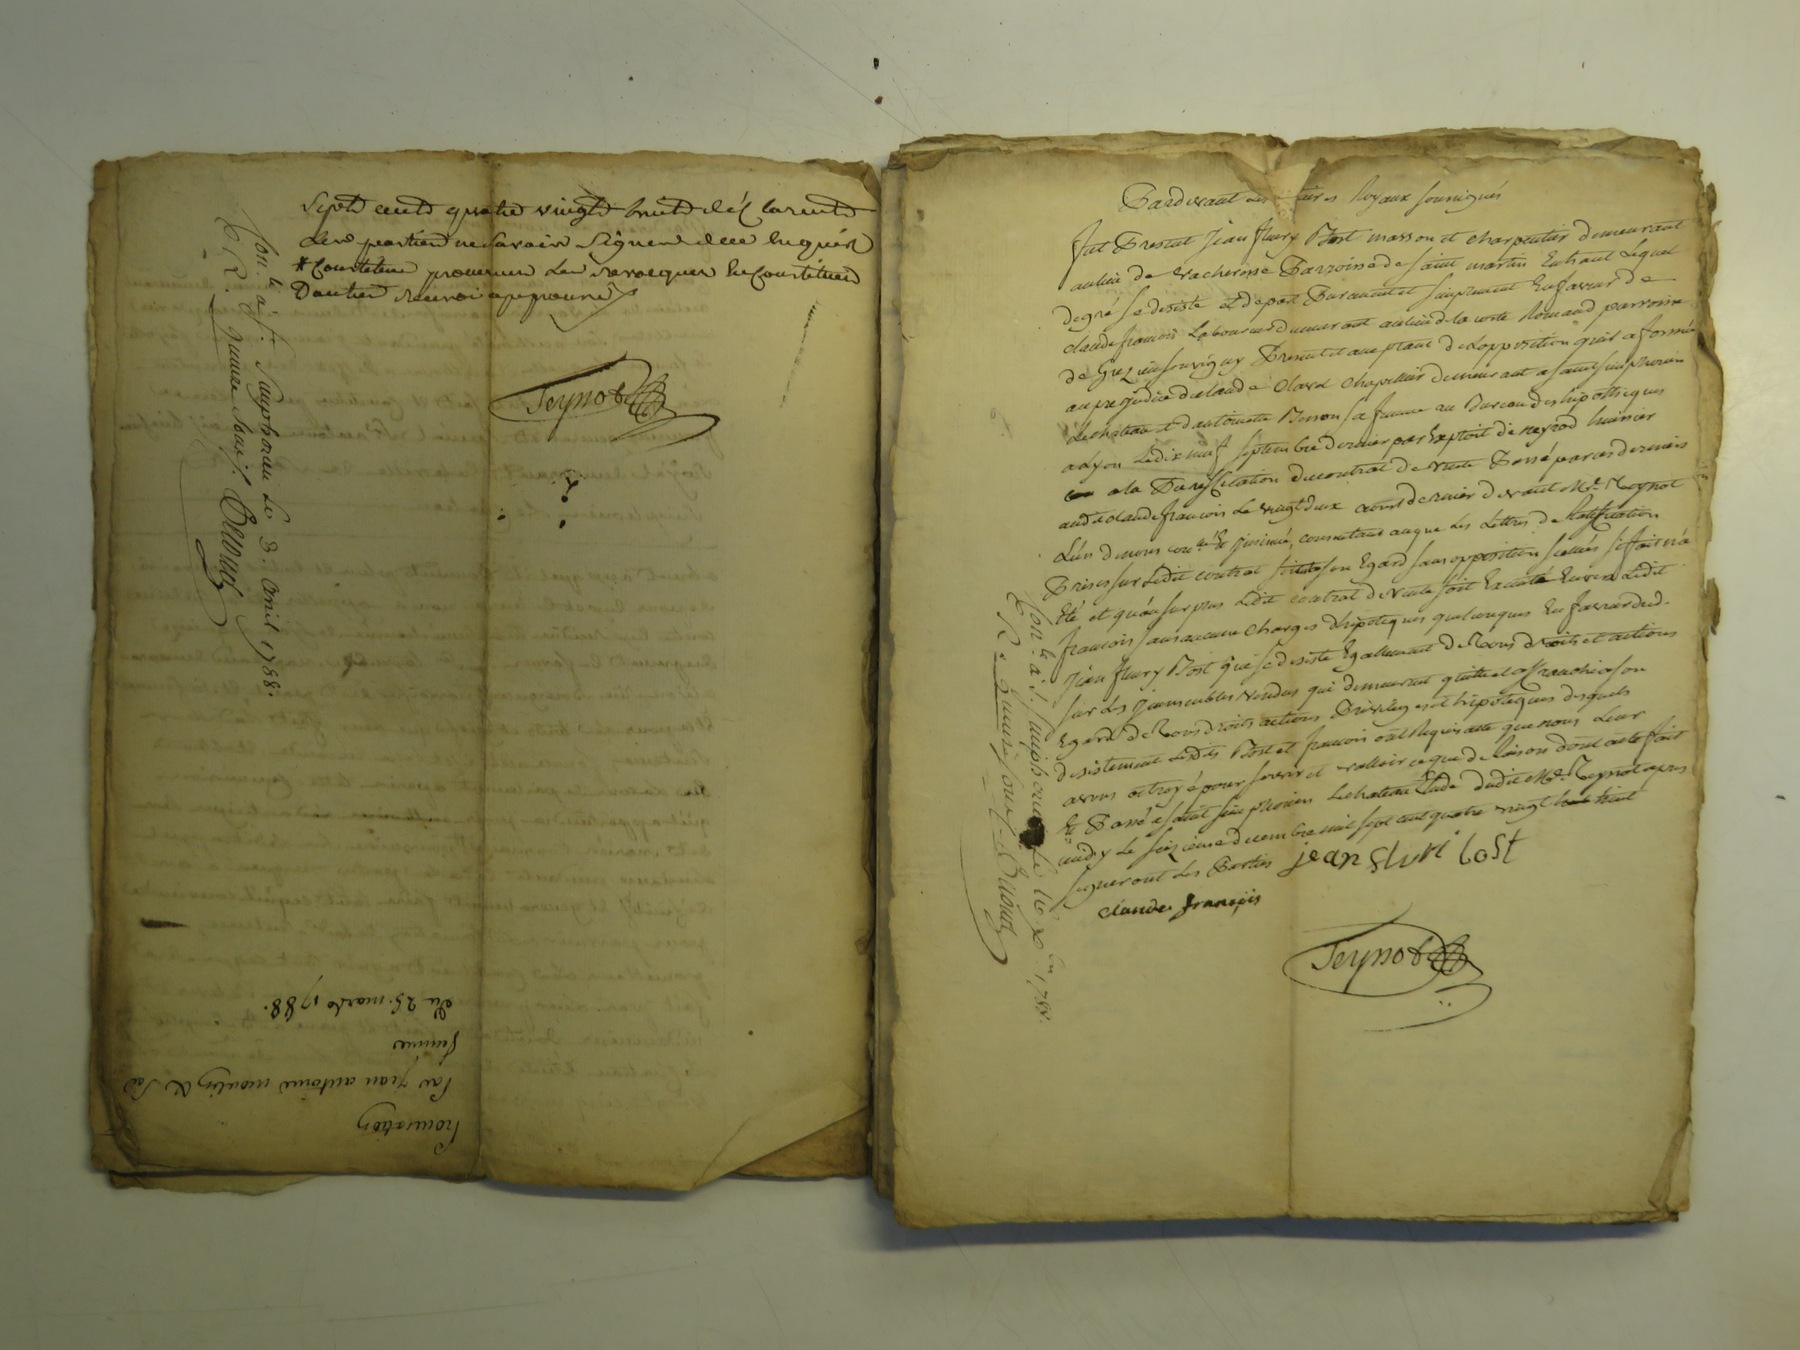 Sept cents quatre vingt huit déclarents
Les parties ne savoir signer de ce enquis
* Constituer procureur Les revocquer En Constituer
Dautres renvoi approuvé
Teynot
Con.lé à St. Simphorien Le 3. avril 1788.
R. quinze sous.
Procuration
Par jean antoine & Sa
femme
Du 25. mars 1788.
Pardevant Les Royaux soussignés
fut Présent Jean fleury Bost masson et charpentier demeurant
au lieu de vacheresse Parroisse de saint martin Lequel
degré se desiste et depart Purement et simplement En faveur de
claude françois Laboureur demeurant au lieu de la coste Romand parroisse
de Grezieu souvigny Présent et acceptant de Lopposition quil a formée
au prejudice de claude clavel chapellier demeurant a saint simphorien
Lechateau et dantoinette sa femme au Bureau des hipotheques
a Lyon Ledix neuf septembre dernier par Exploit de huissier
a la du contrat de vente Passé par ces derniers
aud. claude françois Le vingt deux dernier devant Me. Teynot
Lun de nous consentant que Les Lettres de Ratification
Prises sur Ledit contrat soit a son Egard sans opposition si fait n'a
Eté et quau surplus Ledit contrat de vente soit Executé Envers Ledit
françois sans aucune charges dhipoteques quelconques En faveur dud.
Jean fleury Bost qui se desiste Egallement de Tous droits et actions
sur Les Immeubles vendus qui demeurent quitte et affranchis a son
Egard de Tous droits actions Privileges et hipoteques desquels
desistement Lesdits Bost et françois ont Requis acte que nous Leur
avons octroyé pour servir et valloir ce que de Raison dont acte fait
Et Passé a saint simphorien Lechateau Etude dudit Me. Teynot apres
midy Le seizieme decembre mil sept cent quatre vingt huit
signeront Les Parties jean fluri bost
claude françois
Teynot
Con.lé à St. Simphorien Le 16 xbre 1788.
R. quinze sous.